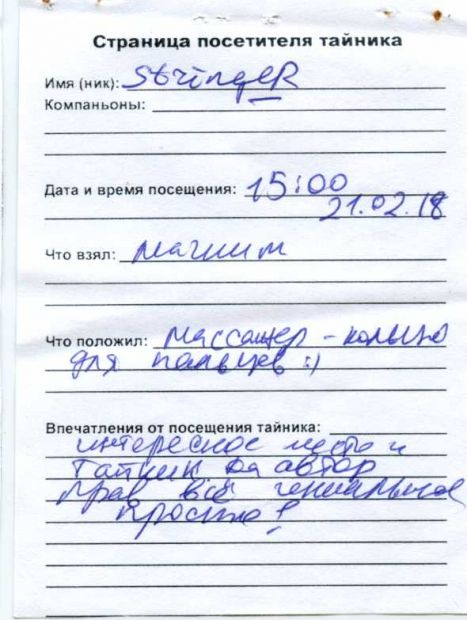 Страница посетителя тайника
Имя (ник): StringeR
Компаньоны:
Дата и время посещения: 15:00
21.02.18
Что взял: магнит
Что положил: массажер - кольцо
для пальцев :)
Впечатления от посещения тайника:
интересное место и
тайник да автор
прав всё гениальное
просто!